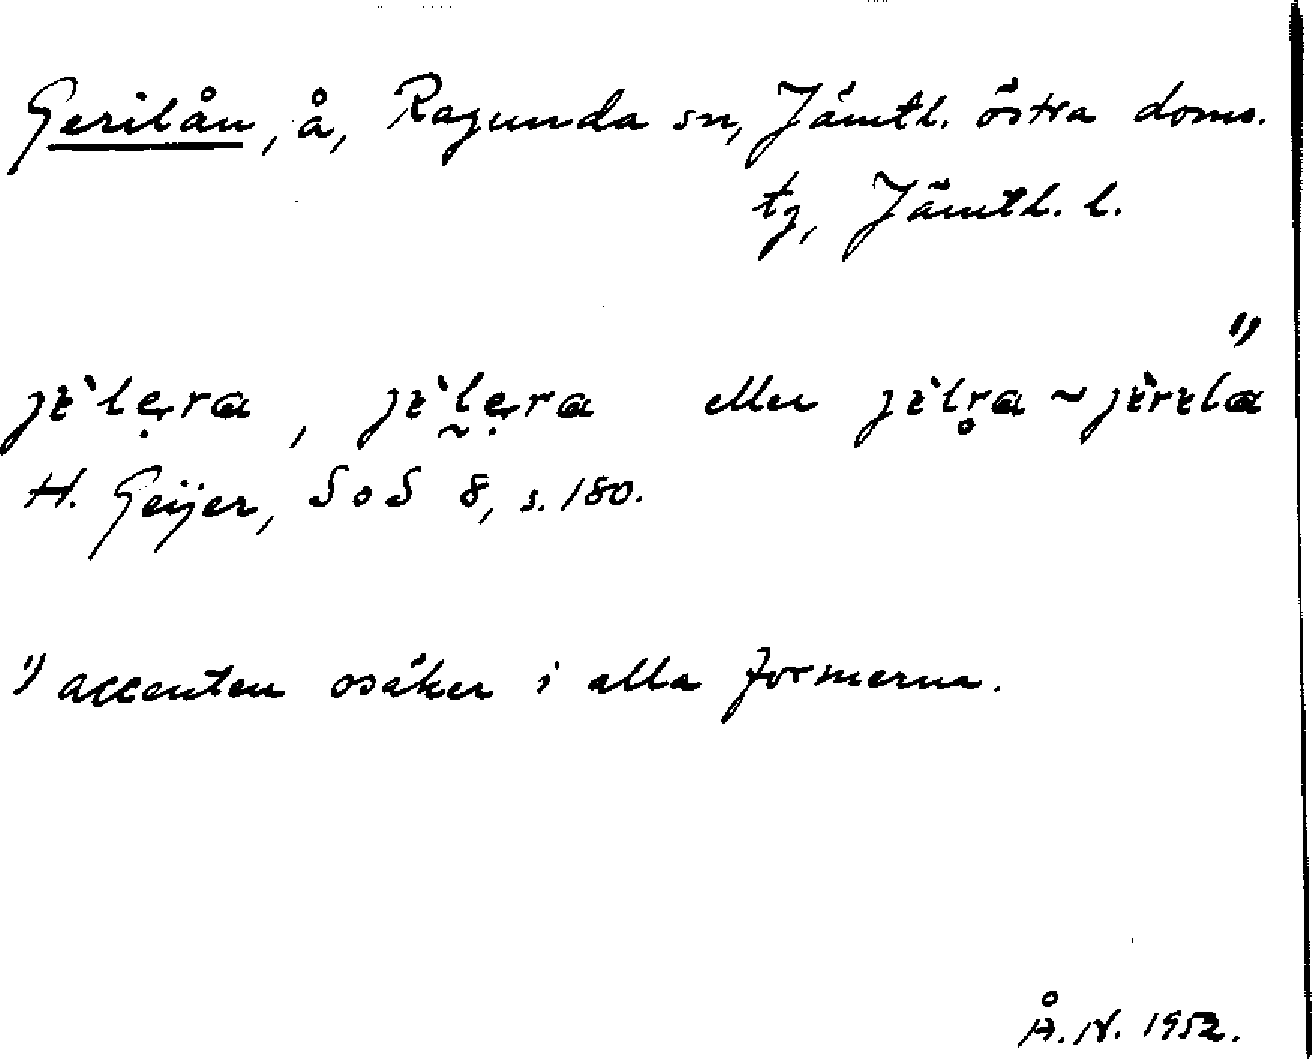 Gerilån, å, Ragunda sn, Jämtl. östra doms.
tg, Jämtl. l.
jɛ̀lẹra, jɛ̀l̰ẹra eller jɛ̀lr̥a ~ jɛ̀rɛla 1)
H. Geijer, SoS 8, s. 180.
1) accenten osäker i alla formerna.
Å.N. 1952.